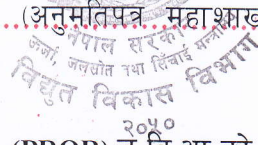 (अनुमतिपत्र महाशाख
नेपाल सरकार
ऊर्जा, जलस्रोत तथा सिंचाई मन्त्रालय
विद्युत विकास विभाग
२०५०
(PROR)